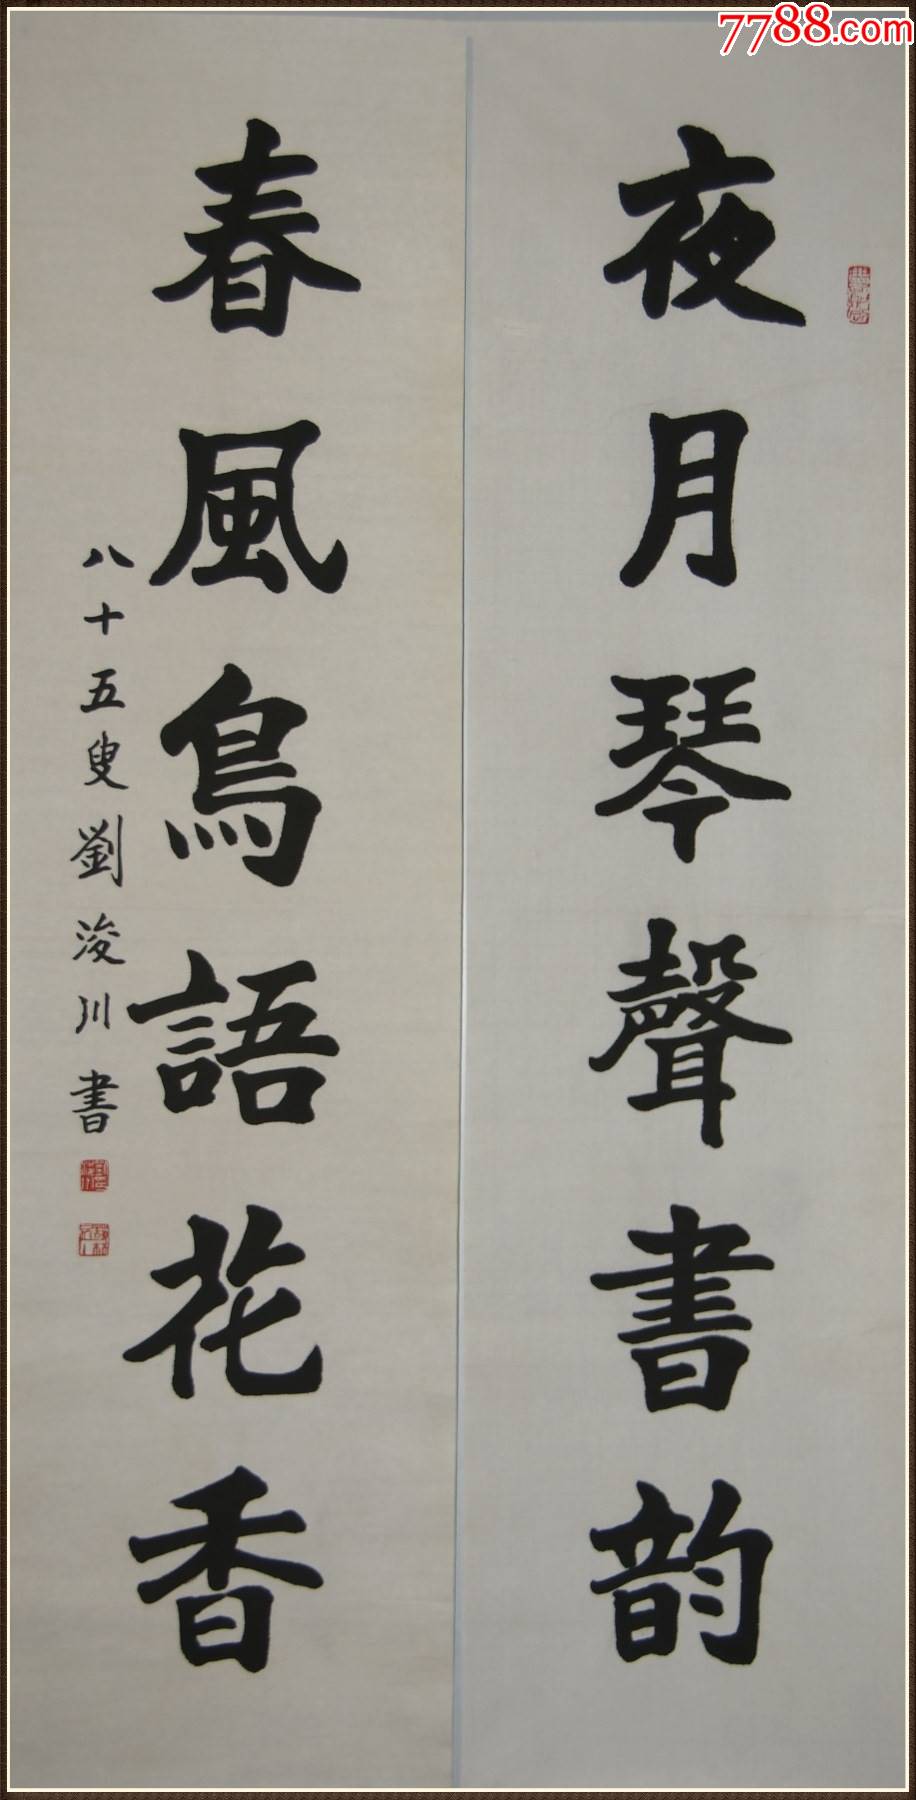 7788.com
夜月琴聲書韵
春風鳥語花香
八十五叟劉浚川書